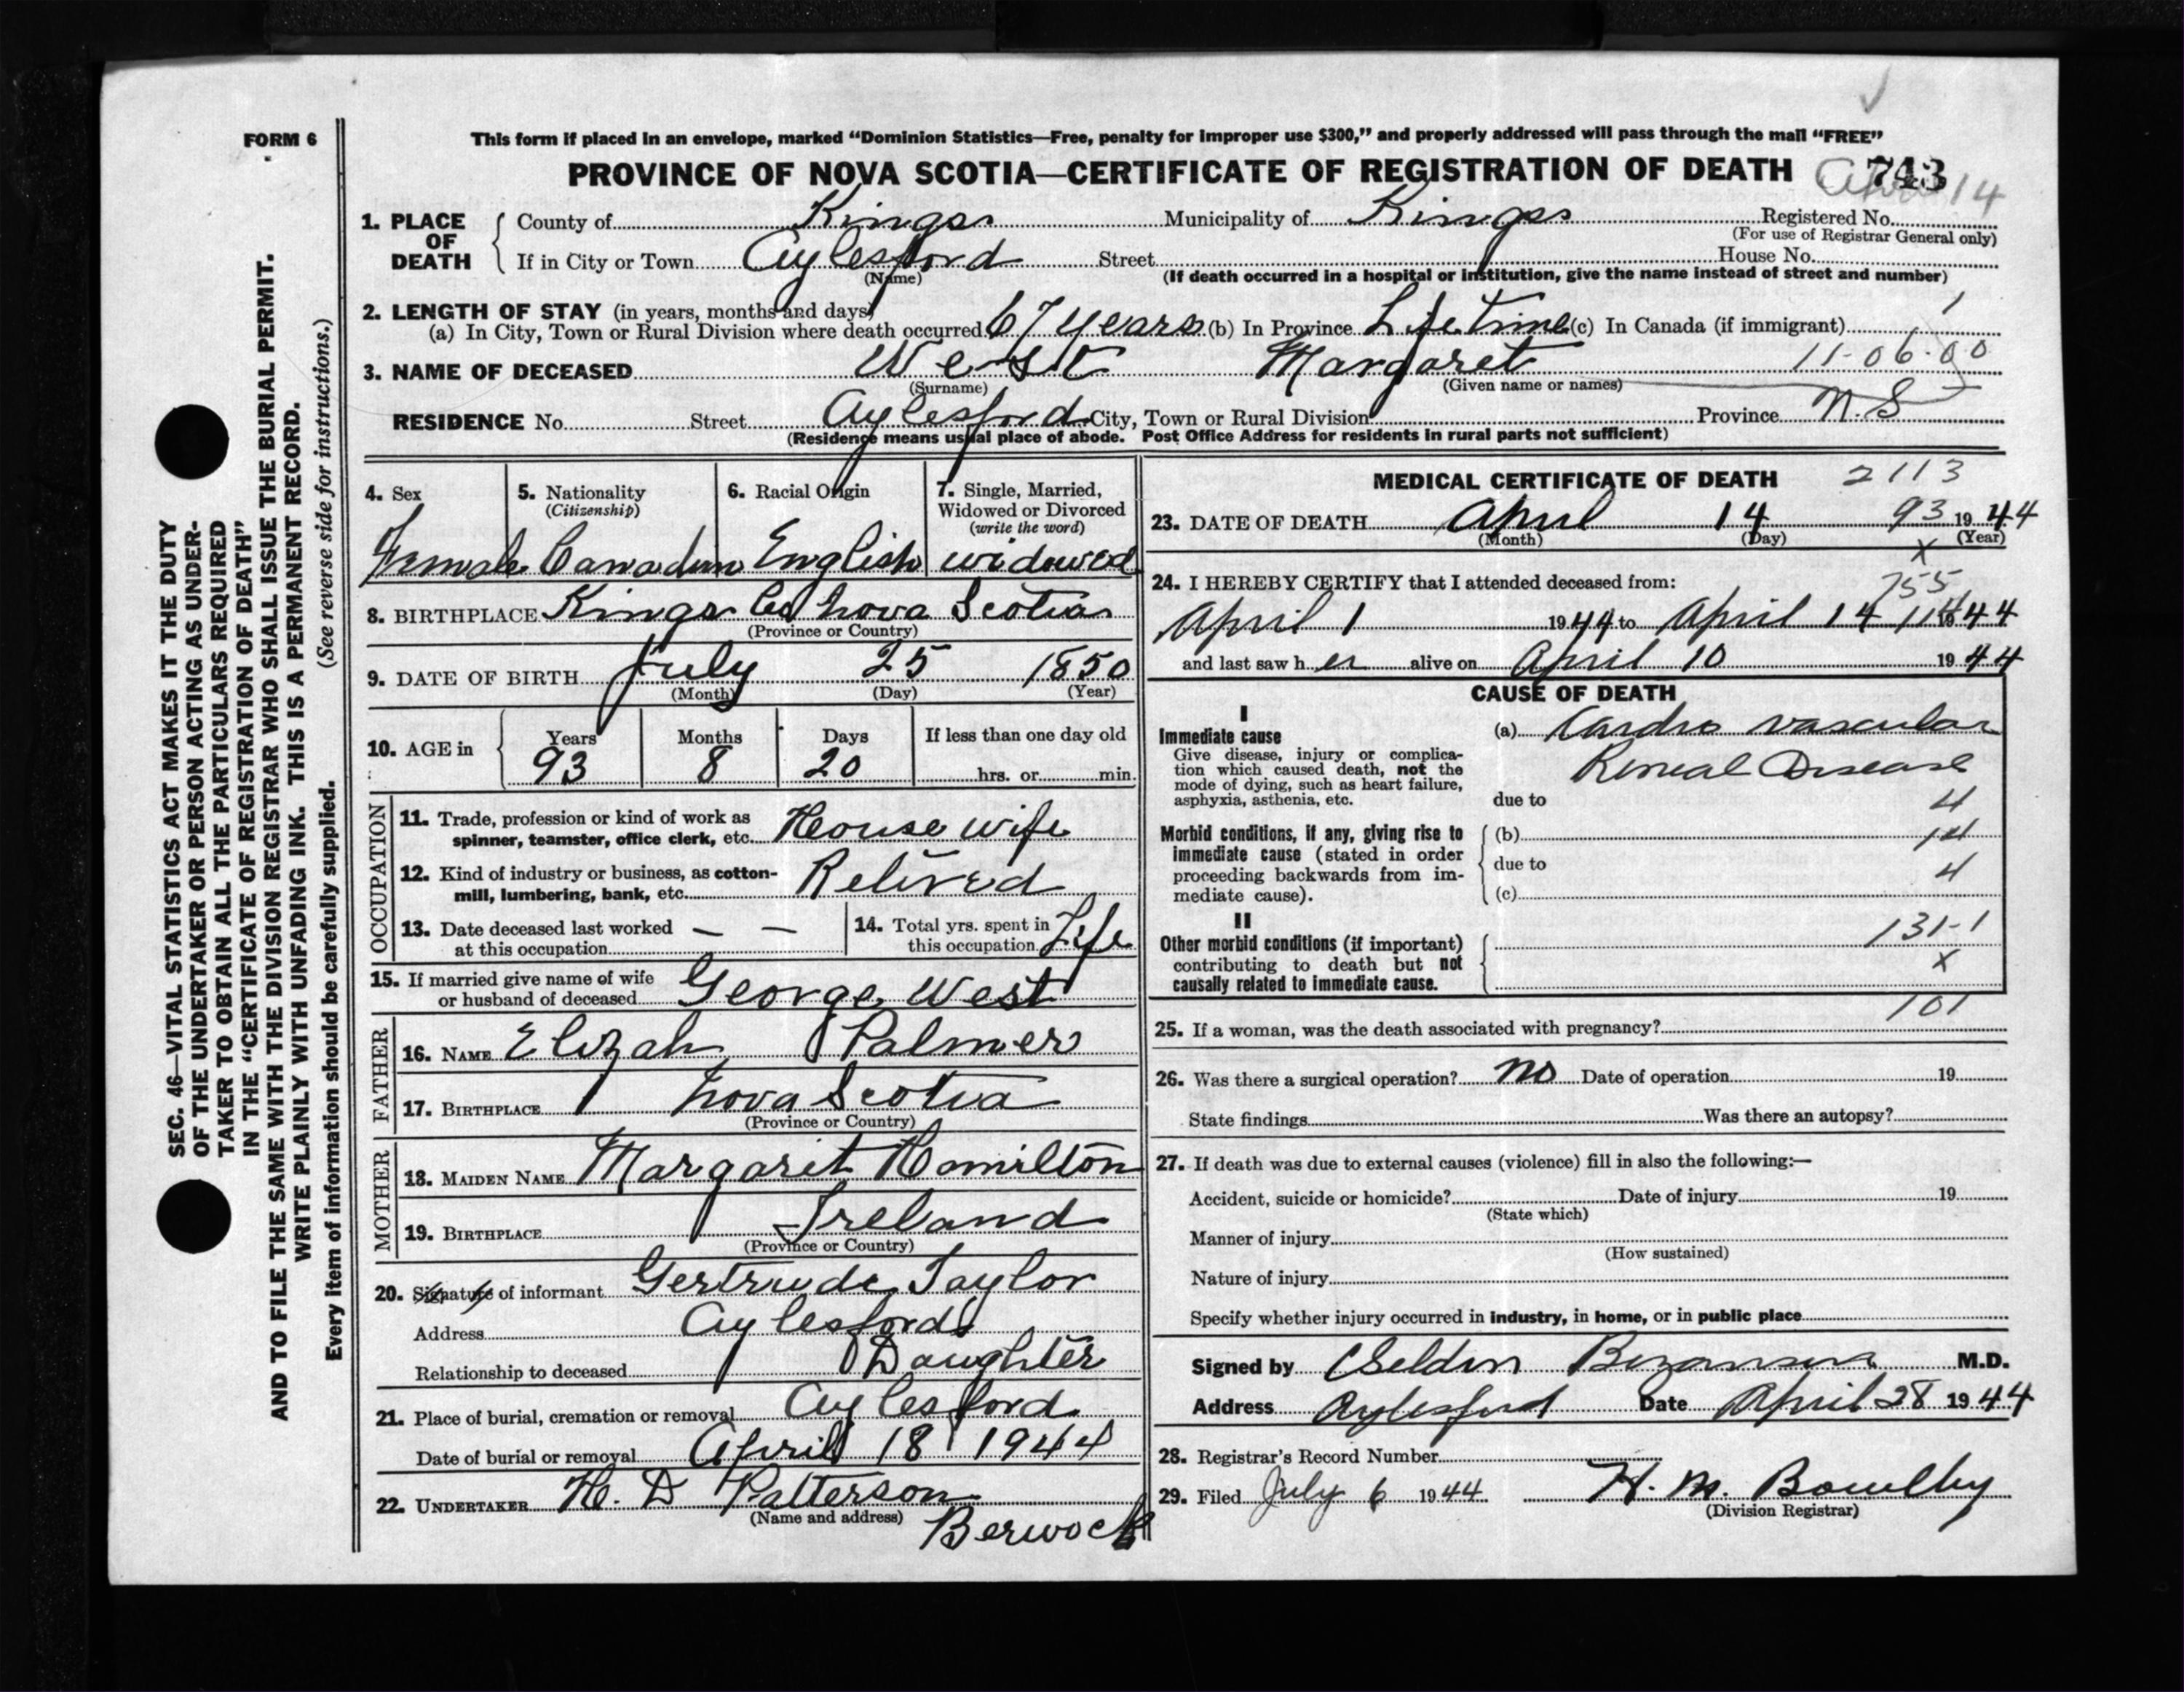 FORM 6
This form if placed in an envelope, marked “Dominion Statistics—Free, penalty for improper use $300,” and properly addressed will pass through the mail “FREE”
PROVINCE OF NOVA SCOTIA—CERTIFICATE OF REGISTRATION OF DEATH 743
April 14
1. PLACE OF DEATH County of Kings Municipality of Kings Registered No.
(For use of Registrar General only)
If in City or Town Aylesford Street House No.
(Name) (If death occurred in a hospital or institution, give the name instead of street and number)
2. LENGTH OF STAY (in years, months and days) 1
(a) In City, Town or Rural Division where death occurred 67 years (b) In Province Life time (c) In Canada (if immigrant)
3. NAME OF DECEASED West Margaret 11-06-00
(Surname) (Given name or names)
RESIDENCE No. Street Aylesford City, Town or Rural Division Province N.S
(Residence means usual place of abode. Post Office Address for residents in rural parts not sufficient)
4. Sex 5. Nationality 6. Racial Origin 7. Single, Married,
(Citizenship) Widowed or Divorced
(write the word)
Female Canadian English widowed
8. BIRTHPLACE Kings Co Nova Scotia
(Province or Country)
9. DATE OF BIRTH July 25 1850
(Month) (Day) (Year)
10. AGE in Years Months Days If less than one day old
93 8 20 hrs. or min.
OCCUPATION
11. Trade, profession or kind of work as
spinner, teamster, office clerk, etc. House wife
12. Kind of industry or business, as cotton-
mill, lumbering, bank, etc. Retired
13. Date deceased last worked — —
at this occupation
14. Total yrs. spent in
this occupation Life
15. If married give name of wife
or husband of deceased George West
FATHER
16. NAME Elizah Palmer
17. BIRTHPLACE Nova Scotia
(Province or Country)
MOTHER
18. MAIDEN NAME Margaret Hamilton
19. BIRTHPLACE Ireland
(Province or Country)
20. Signature of informant Gertrude Taylor
Address Aylesford
Relationship to deceased Daughter
21. Place of burial, cremation or removal Aylesford
Date of burial or removal April 18 1944
22. UNDERTAKER H. D Patterson
(Name and address) Berwick
MEDICAL CERTIFICATE OF DEATH 2113
23. DATE OF DEATH April 14 93 1944
(Month) (Day) x (Year)
24. I HEREBY CERTIFY that I attended deceased from:
755
April 1 1944 to April 14 1944
and last saw her alive on April 10 1944
CAUSE OF DEATH
I
Immediate cause (a) Cardio vascular
Give disease, injury or complica-
tion which caused death, not the Renal Disease
mode of dying, such as heart failure,
asphyxia, asthenia, etc. due to 4
Morbid conditions, if any, giving rise to (b) 14
immediate cause (stated in order due to
proceeding backwards from im- 4
mediate cause). (c)
II
131-1
Other morbid conditions (if important)
contributing to death but not x
causally related to immediate cause.
101
25. If a woman, was the death associated with pregnancy?
26. Was there a surgical operation? no Date of operation 19
State findings Was there an autopsy?
27. If death was due to external causes (violence) fill in also the following:—
Accident, suicide or homicide? Date of injury 19
(State which)
Manner of injury
(How sustained)
Nature of injury
Specify whether injury occurred in industry, in home, or in public place
Signed by Seldon Bezanson M.D.
Address Aylesford Date April 28 1944
28. Registrar's Record Number
29. Filed July 6 1944 H. M. Bowlby
(Division Registrar)
SEC. 46—VITAL STATISTICS ACT MAKES IT THE DUTY
OF THE UNDERTAKER OR PERSON ACTING AS UNDER-
TAKER TO OBTAIN ALL THE PARTICULARS REQUIRED
IN THE “CERTIFICATE OF REGISTRATION OF DEATH”
AND TO FILE THE SAME WITH THE DIVISION REGISTRAR WHO SHALL ISSUE THE BURIAL PERMIT.
WRITE PLAINLY WITH UNFADING INK. THIS IS A PERMANENT RECORD.
Every item of information should be carefully supplied. (See reverse side for instructions.)